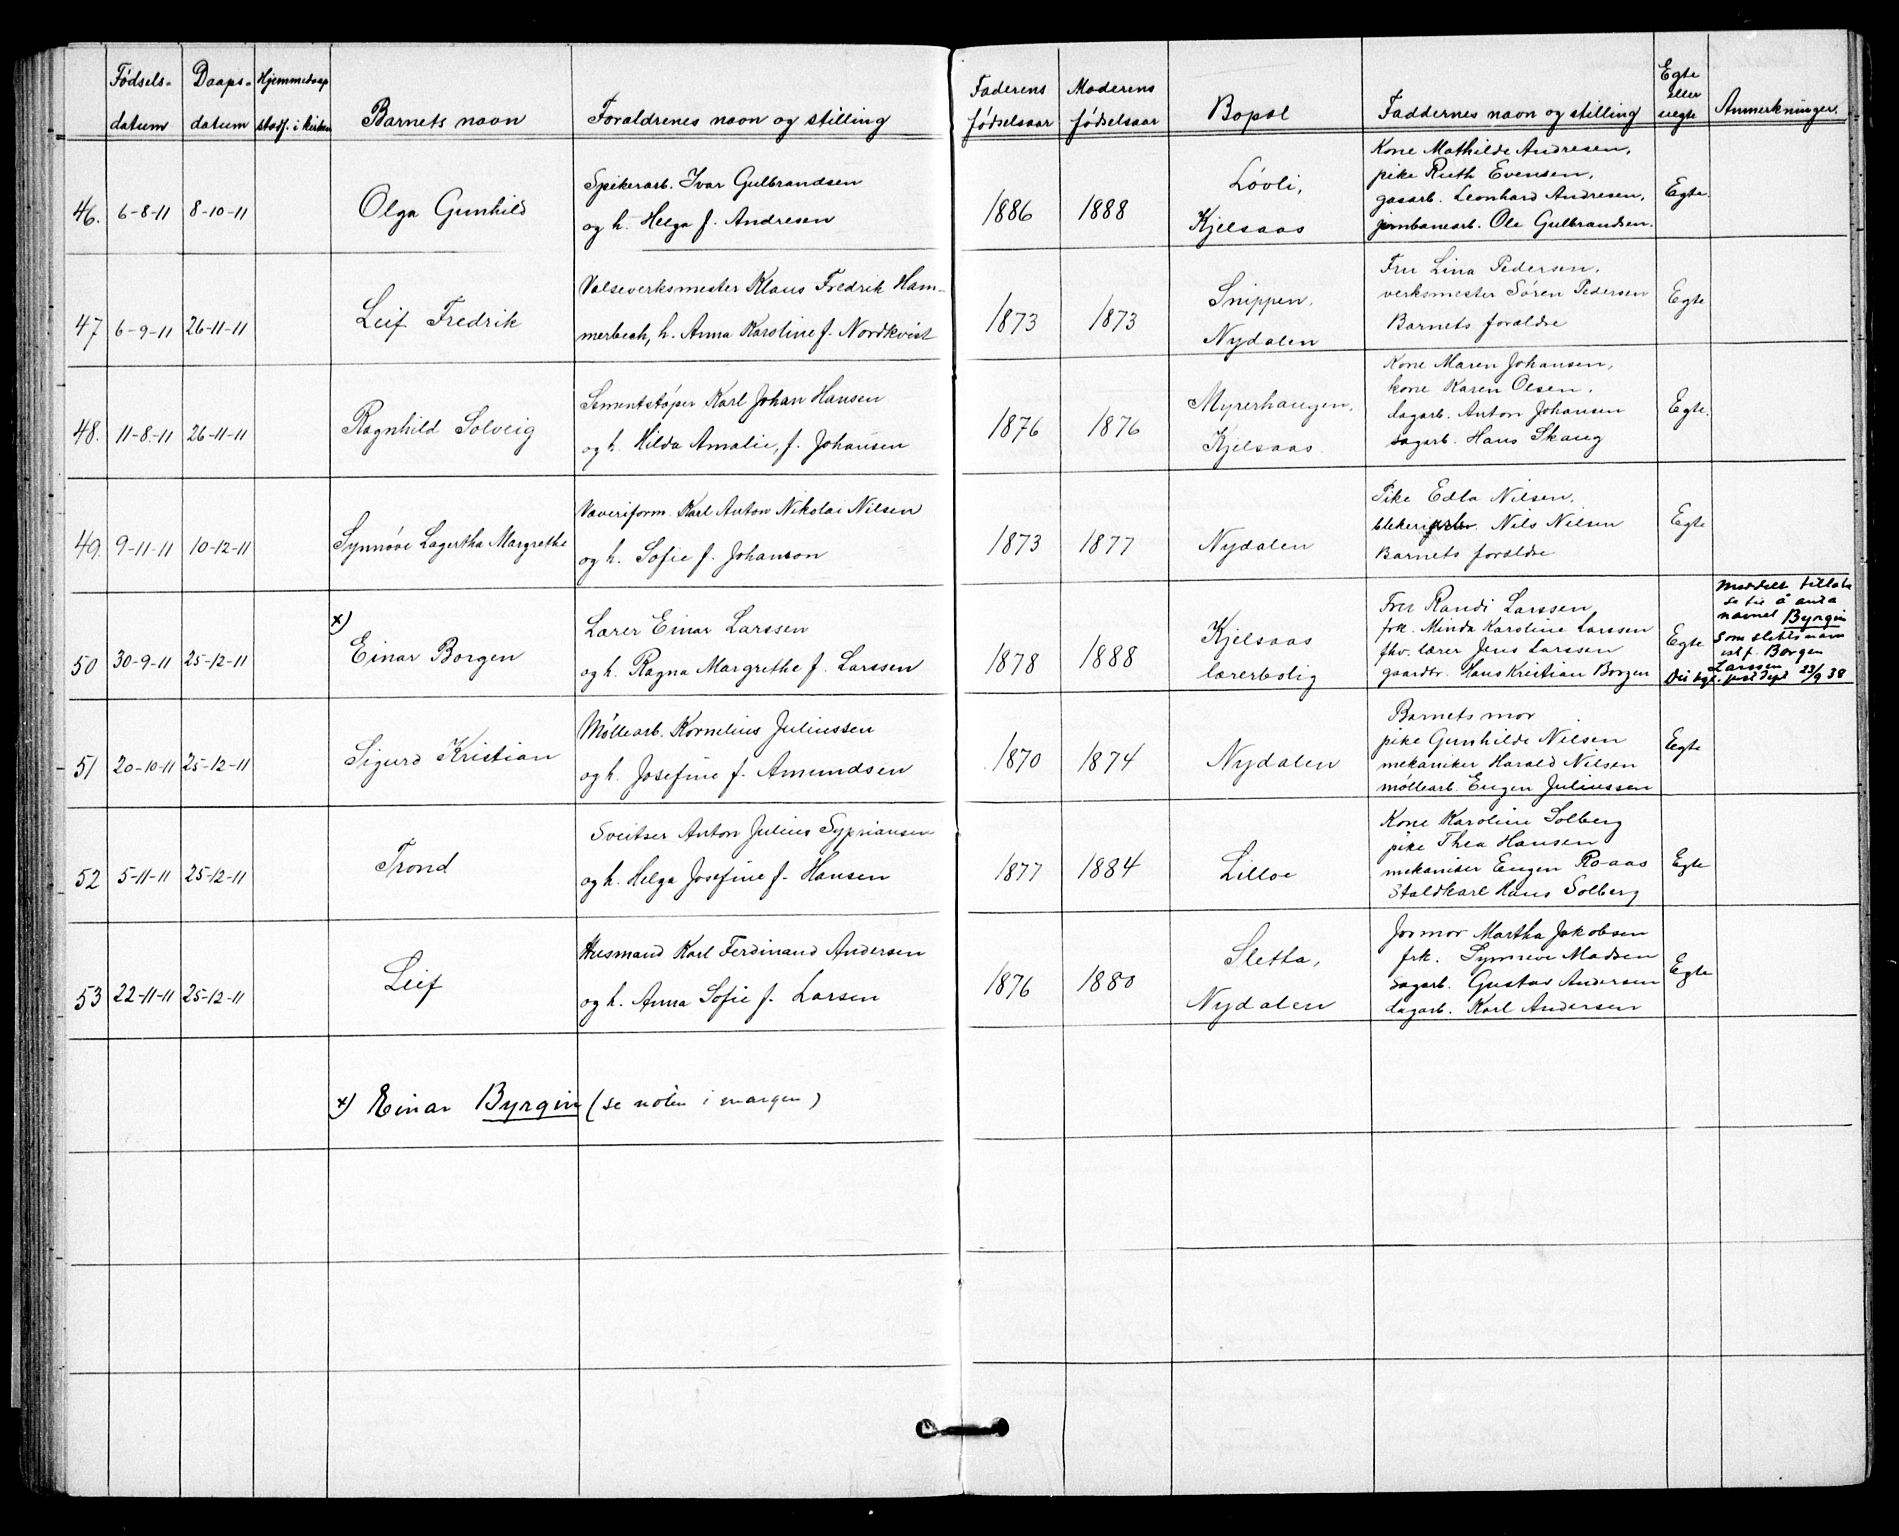 Fødsels- Daaps- Hjemmedaap
datum datum stadf. i kirken Barnets navn Foraldrenes navn og stilling
Faderens Moderens
fødselsaar fødselsaar Bopæl Faddernes navn og stilling
Egte
eller
uegte Anmerkninger.
46. 6-8-11 8-10-11 Olga Gunhild
Spikerarb. Ivar Gulbrandsen
og h. Helga f. Andresen
1886 1888
Løvli,
Kjelsaas
Kone Mathilde Andresen,
pike Ruth Evensen,
gasarb. Leonhard Andresen,
jernbanearb. Ole Gulbrandsen.
Egte
47 6-9-11 26-11-11 Leif Fredrik
Valseverksmester Klaus Fredrik Ham-
merbech, h. Anna Karoline f. Nordkvist
1873 1873
Snippen,
Nydalen
Fru Lina Pedersen,
verksmester Sören Pedersen
Barnets foraldre
Egte
48. 11-8-11 26-11-11 Ragnhild Solveig
Sementstøper Karl Johan Hansen
og h. Hilda Amalie, f. Johansen
1876 1876
Myrerhaugen,
Kjelsaas
Kone Maren Johansen,
kone Karen Olsen,
dagarb. Anton Johansen
sagarb. Hans Skaug
Egte.
49. 9-11-11 10-12-11 Synnøve Lagertha Margrethe
Væveriform. Karl Anton Nikolai Nilsen
og h. Sofie f. Johanson
1873 1877 Nydalen
Pike Edla Nilsen,
blekeriarb. Nils Nilsen
Barnets foraldre
Egte
x)
50 30-9-11 25-12-11 Einar Borgen
Lærer Einar Larssen
og h. Ragna Margrethe f. Larssen
1878 1888
Kjelsaas
lærerbolig
Fru Randi Larssen
frk. Minda Karoline Larssen
fhv. lærer Jens Larssen
gaardbr. Hans Kristian Borgen
Egte
Meddelt tillatel
se til å anta
navnet Byrgin
som slektsnavn
ist.f. Borgen
Larssen
just.dept 23/9 38
51 20-10-11 25-12-11 Sigurd Kristian
Møllearb. Kornelius Juliussen
og h. Josefine f. Amundsen
1870 1874 Nydalen
Barnets mor
pike Gunhilde Nilsen
mekaniker Harald Nilsen
møllearb. Eugen Juliussen
Egte
52 5-11-11 25-12-11 Trond
Sveitser Anton Julius Sypriansen
og h. Helga Josefine f. Hansen
1877 1884 Lilloe
Kone Karoline Solberg
pike Thea Hansen
mekaniker Eugen Ro-aas
Staldkarl Hans Solberg
Egte
53 22-11-11 25-12-11 Leif
Husmand Karl Ferdinand Andersen
og h. Anna Sofie f. Larsen
1876 1880
Sletta,
Nydalen
Jormor Martha Jakobsen
frk. Synneve Madsen
sagarb. Gustav Andersen
dagarb. Karl Andersen
Egte
x) Einar Byrgin (se noten i margen)